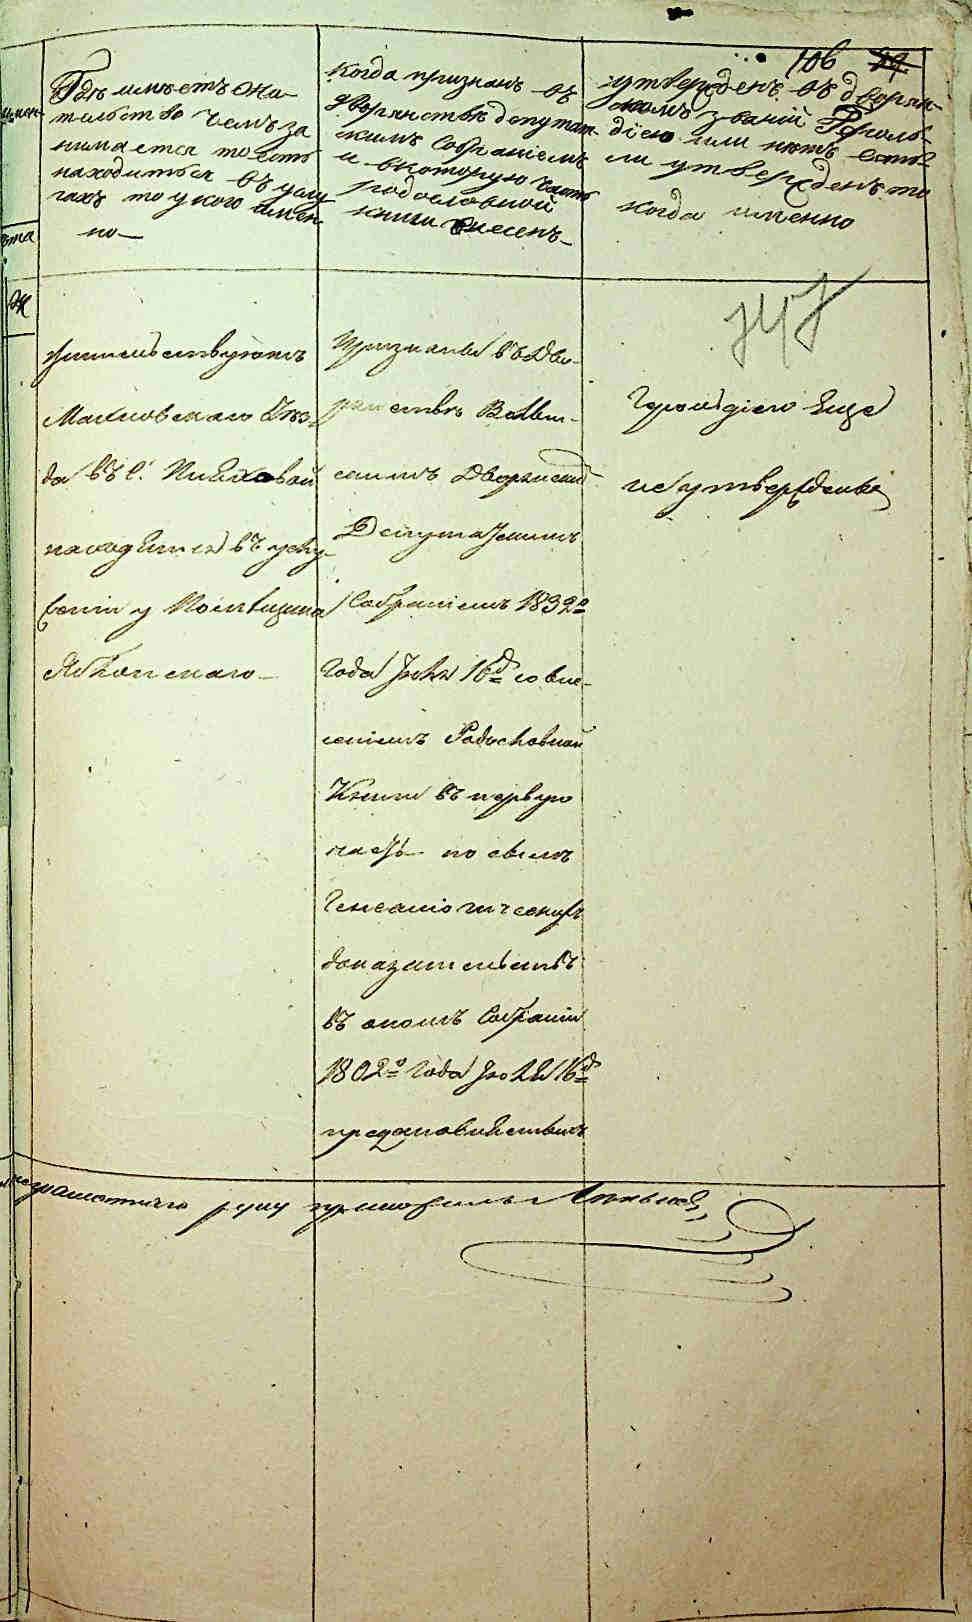 106
Где имѣетъ жи-
тельство чемъ за
нимается то есть
находиться въ услу
гахъ то у кого имен
но
Когда признанъ въ
дворянствѣ депутат-
скимъ Собраніемъ
и вкоторую часть
родословной
книги внесенъ
утвержденъ въ дворян-
скомъ званіи Героль-
діею или нѣтъ естьли
утвержденъ то
когда именно
жительствуютъ
Махновскаго Уѣз-
да въ с.
находится въ услу-
женіи у Помѣщика
Признаны въ Дво-
рянствѣ
Дворянский
Депутатскимъ
Собраніемъ 1832го
года 16д со вне-
сеніемъ Родословной
Книги въ первую
часть по
Генеалогическихъ
доказательствъ
въ ономъ Собраніи
1802го года 16д
Герольдіею Еще
не утверждены
неграмотнаго руку приложилъ